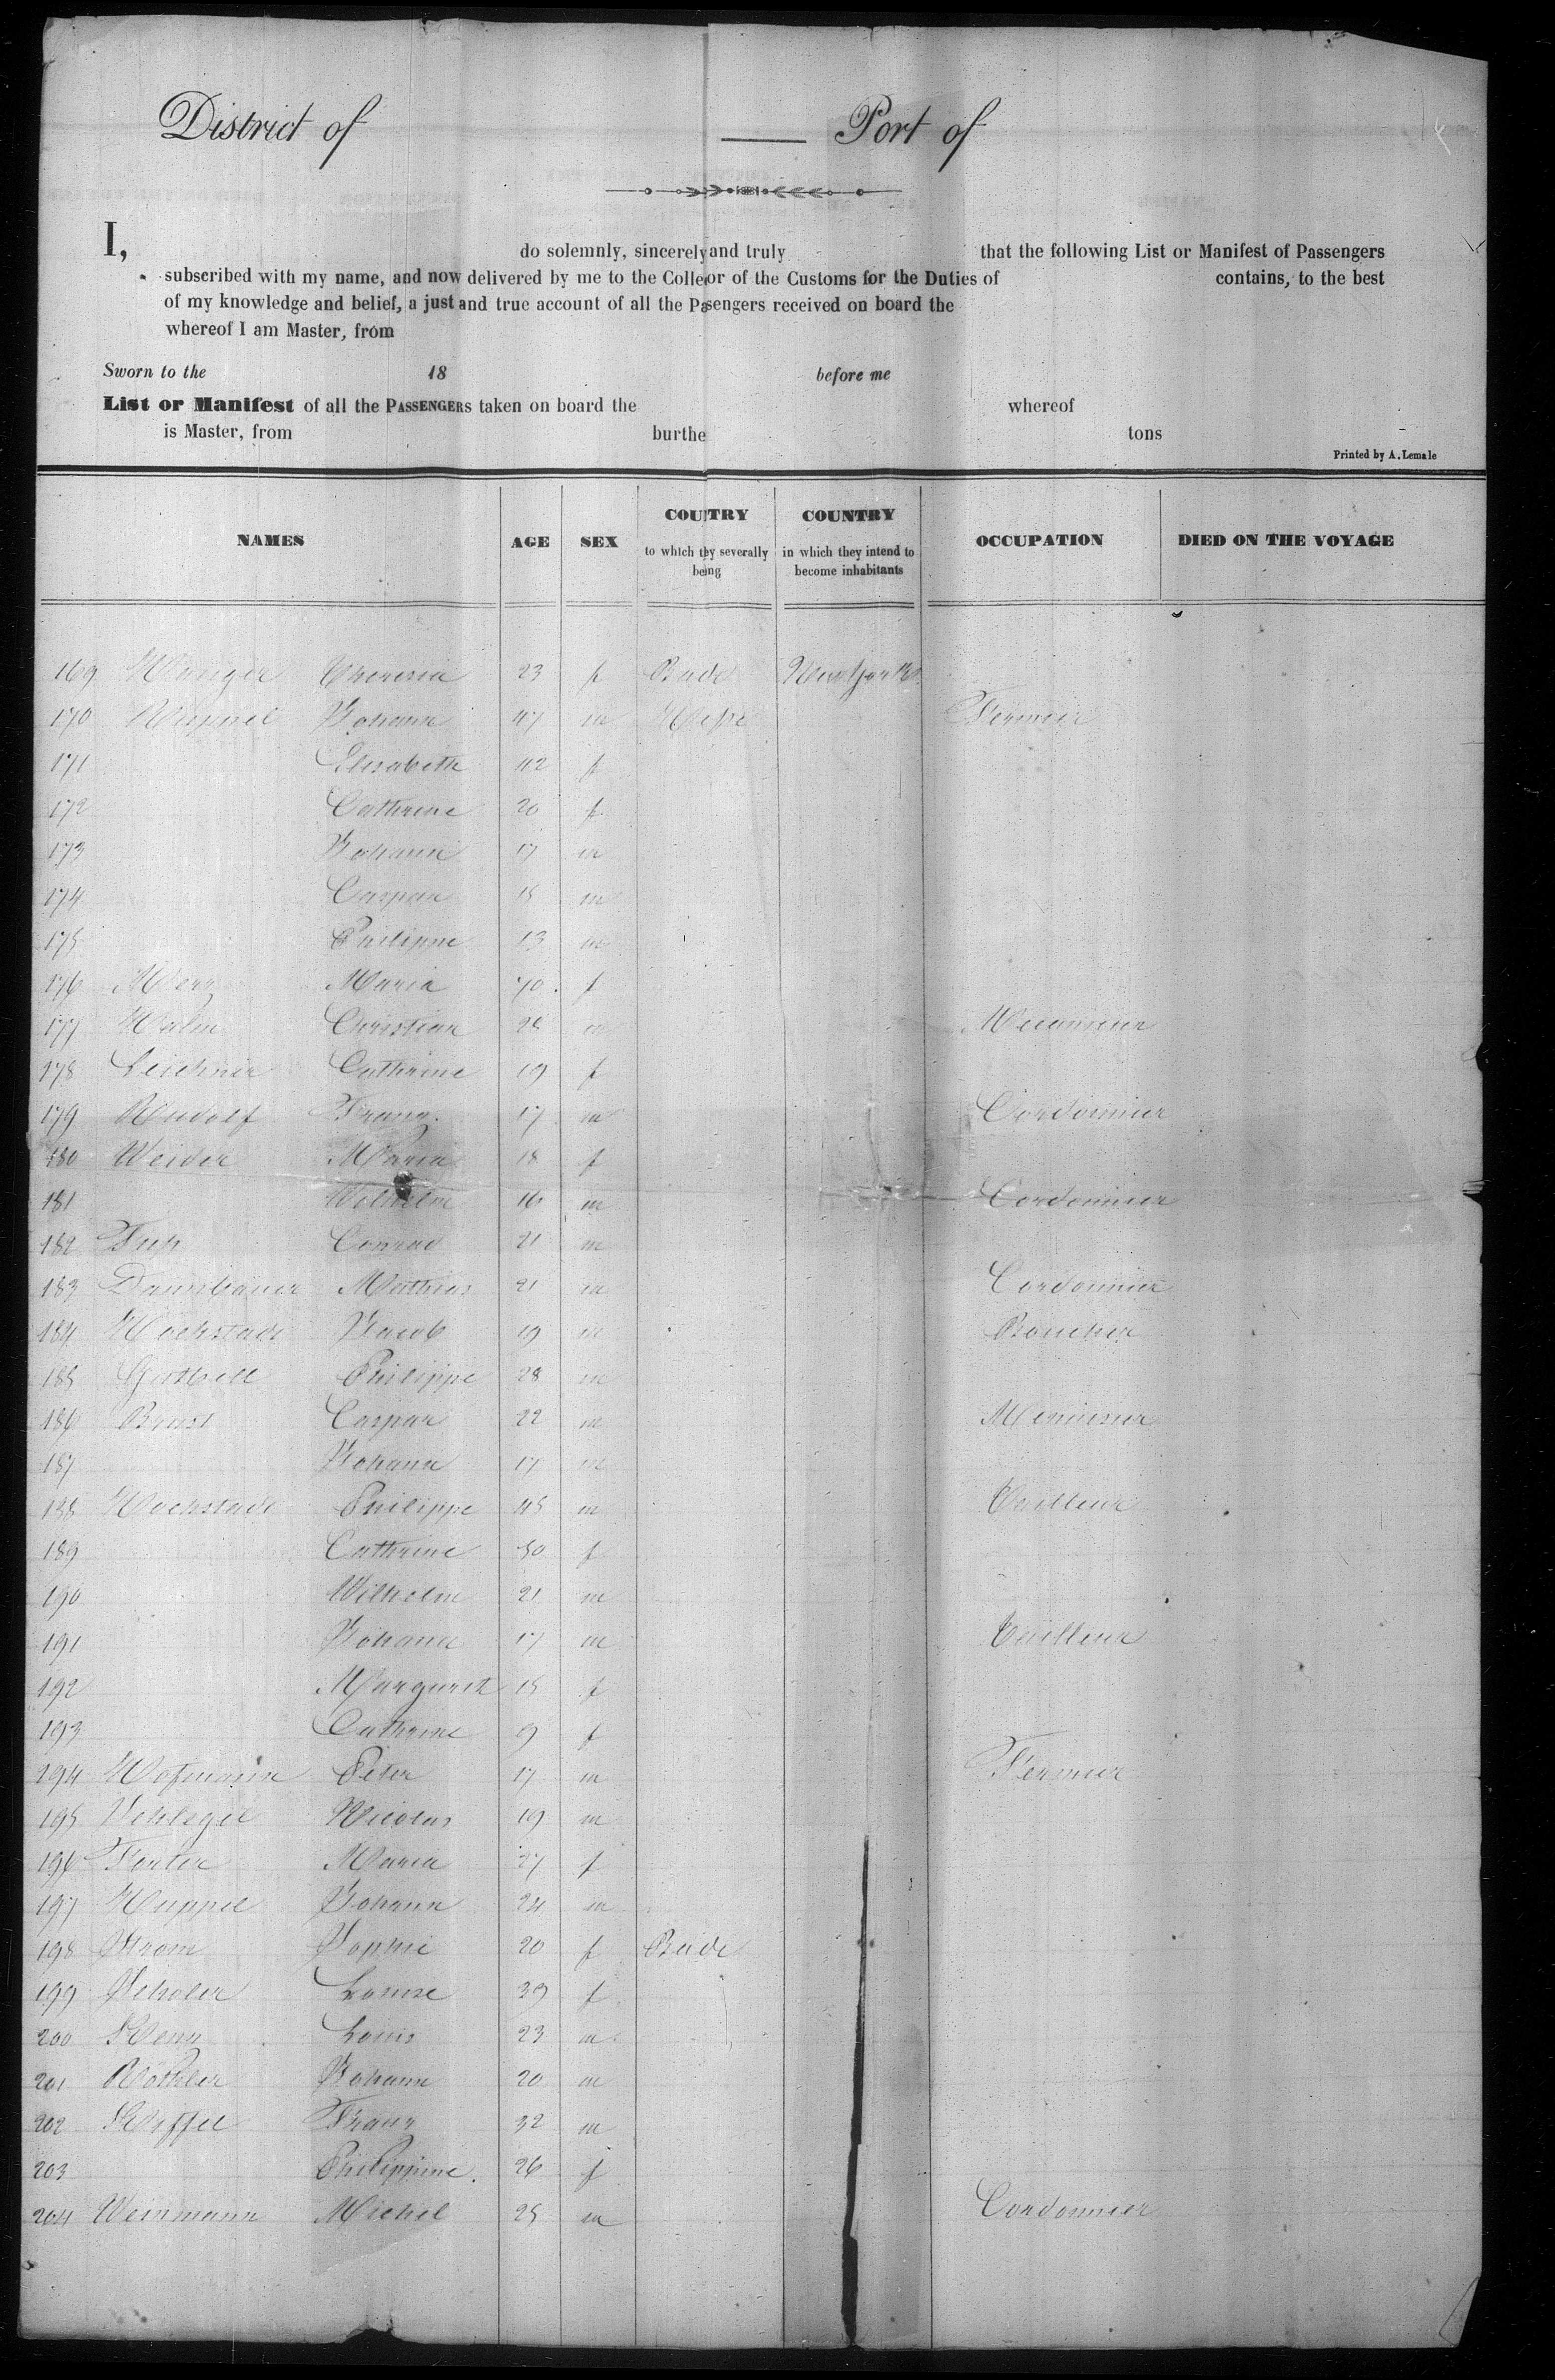 District of Port of
I, do solemnly, sincerely and truly that the following List or Manifest of Passengers
subscribed with my name, and now delivered by me to the Colleor of the Customs for the Duties of contains, to the best
of my knowledge and belief, a just and true account of all the Pasengers received on board the
whereof I am Master, from
Sworn to the 18 before me
List or Manifest of all the PASSENGERS taken on board the whereof
is Master, from burthe tons
Printed by A. Lemale
NAMES AGE SEX COUTRY to which they severally being COUNTRY in which they intend to become inhabitants OCCUPATION DIED ON THE VOYAGE
169 Theresia 23 f Bade
170 Johann 47 m Fermier
171 Elisabeth 42 f
172 Cathrine 20 f
173 Johann 17 m
174 Caspar 15 m
175 Philippe 13 m
176 Maria 70 f
177 Christian m
178 Leichner Cathrine 19 f
179 Rudolf Franz 17 m Cordonnier
180 Weider Maria 18 f
181 Wilhelm 16 m Cordonnier
182 Conrad 21 m
183 Dannbauer Mathias 21 m Cordonnier
184 Hochstadt Jacob 19 m Boucher
185 Philippe 28 m
186 Brust Caspar 22 m Menuisier
187 Johann 17 m
188 Hochstadt Philippe 45 m Tailleur
189 Cathrine 50 f
190 Wilhelm 21 m
191 Johann 17 m Tailleur
192 Margareth 15 f
193 Cathrine 9 f
194 Hofmann Peter 17 m Fermier
195 Schlegel Nicolas 19 m
196 Maria 27 f
197 Huppel Johann 24 m
198 Strom Sophie 20 f Bade
199 Scholer Louise 39 f
200 Louis 23 m
201 Johann 20 m
202 Franz 32 m
203 Philippine 26 f
204 Weinmann Michel 25 m Cordonnier